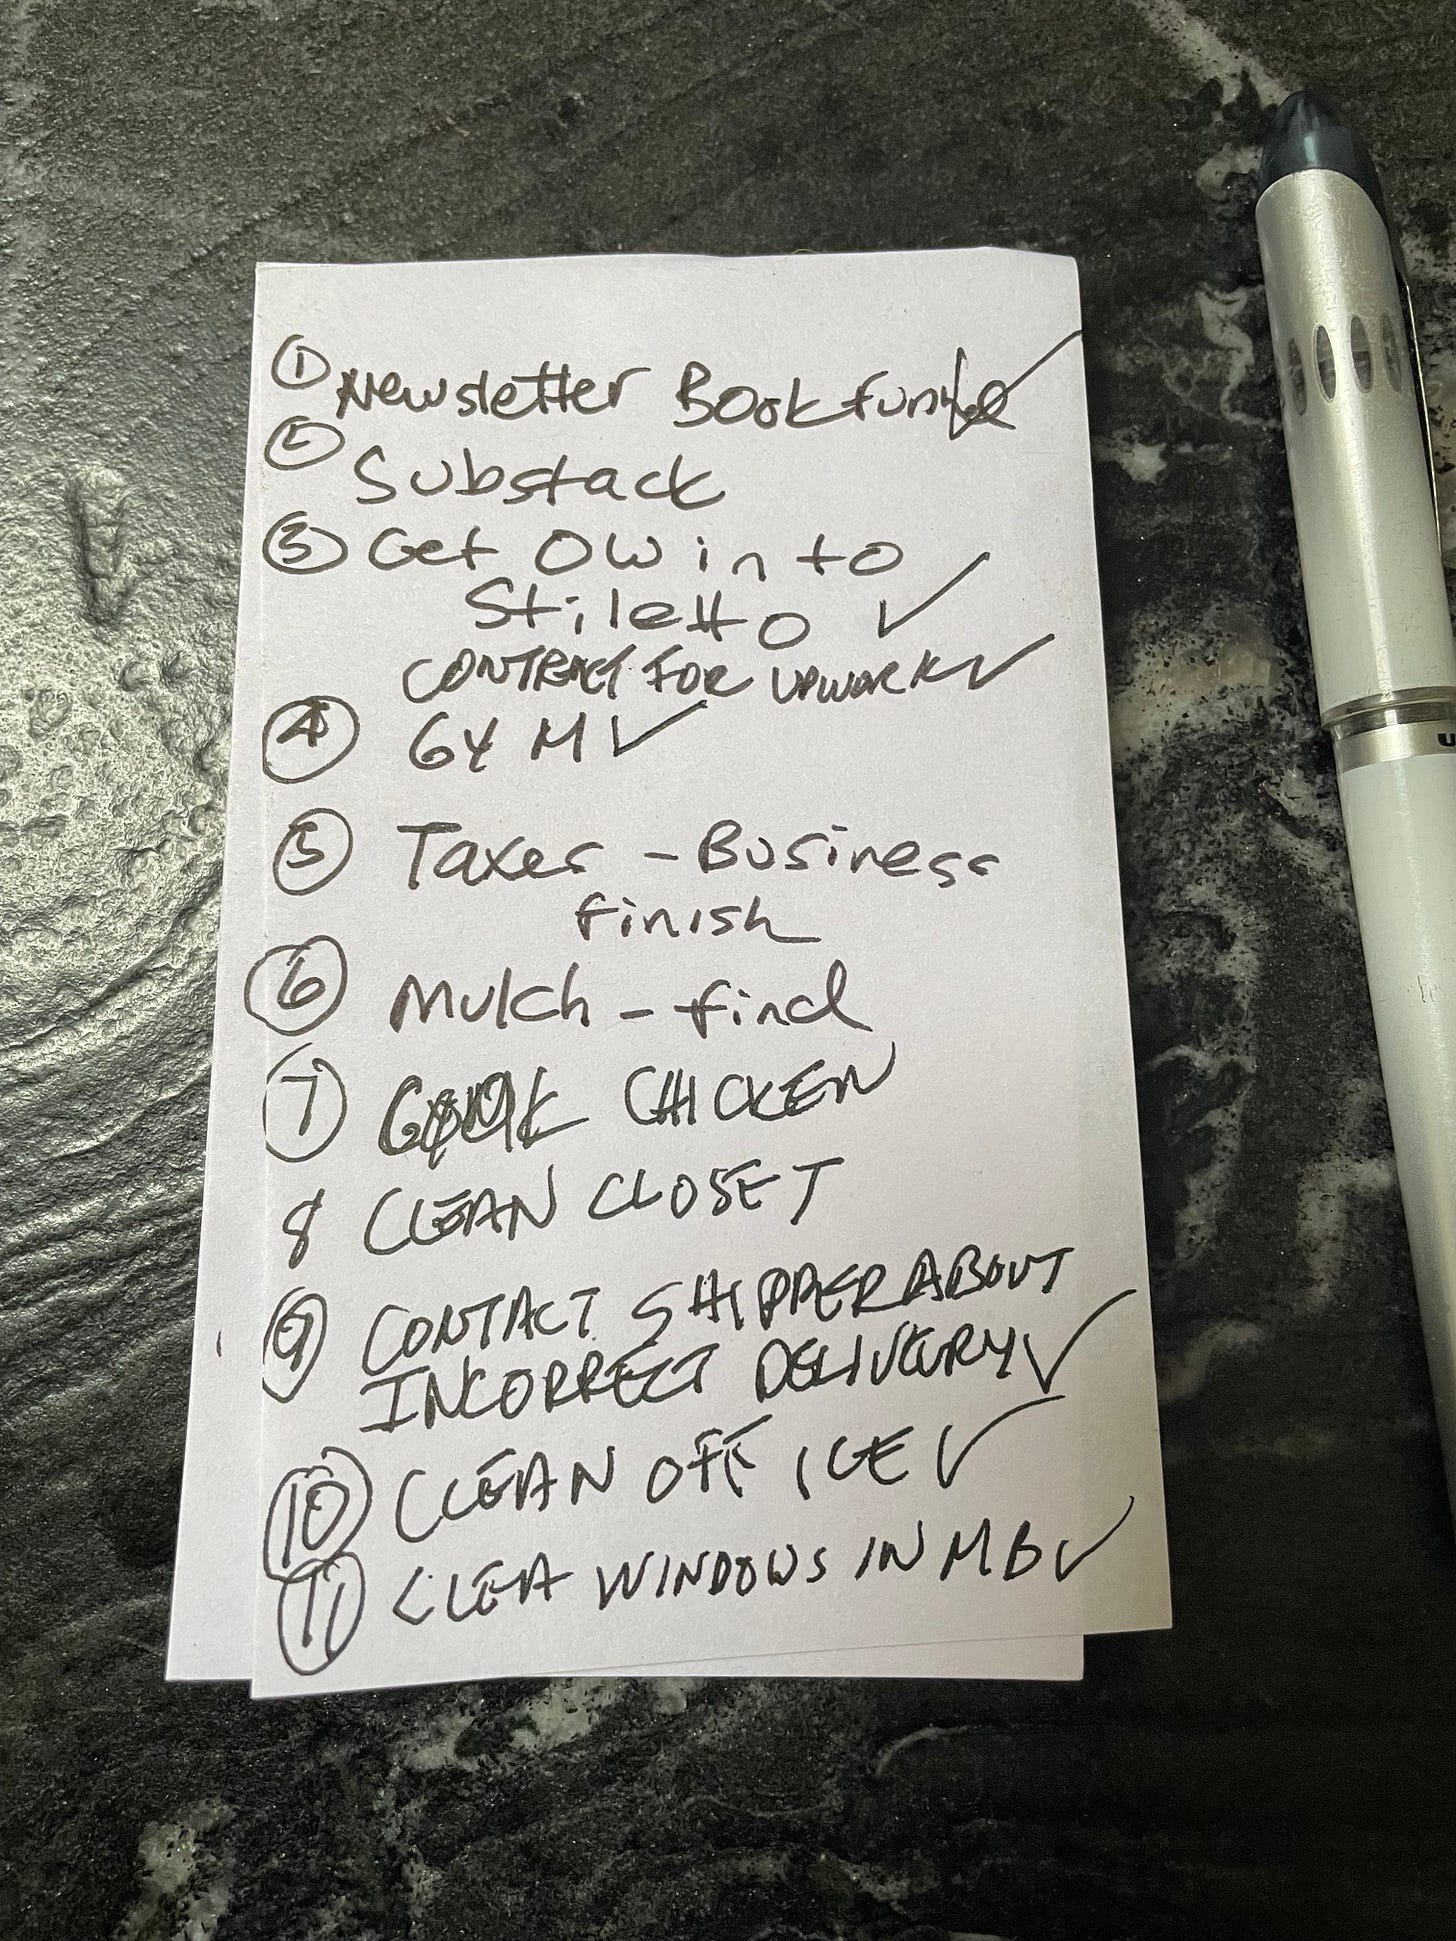 ① Newsletter Bookfunnel ✓
② Substack
③ Get OW into
Stiletto ✓
CONTRACT FOR UPWORK ✓
④ GYM ✓
⑤ Taxes - Business
finish
⑥ Mulch - find
⑦ COOK CHICKEN
8 CLEAN CLOSET
⑨ CONTACT SHIPPER ABOUT
INCORRECT DELIVERY ✓
⑩ CLEAN OFFICE ✓
⑪ CLEA WINDOWS IN MB ✓